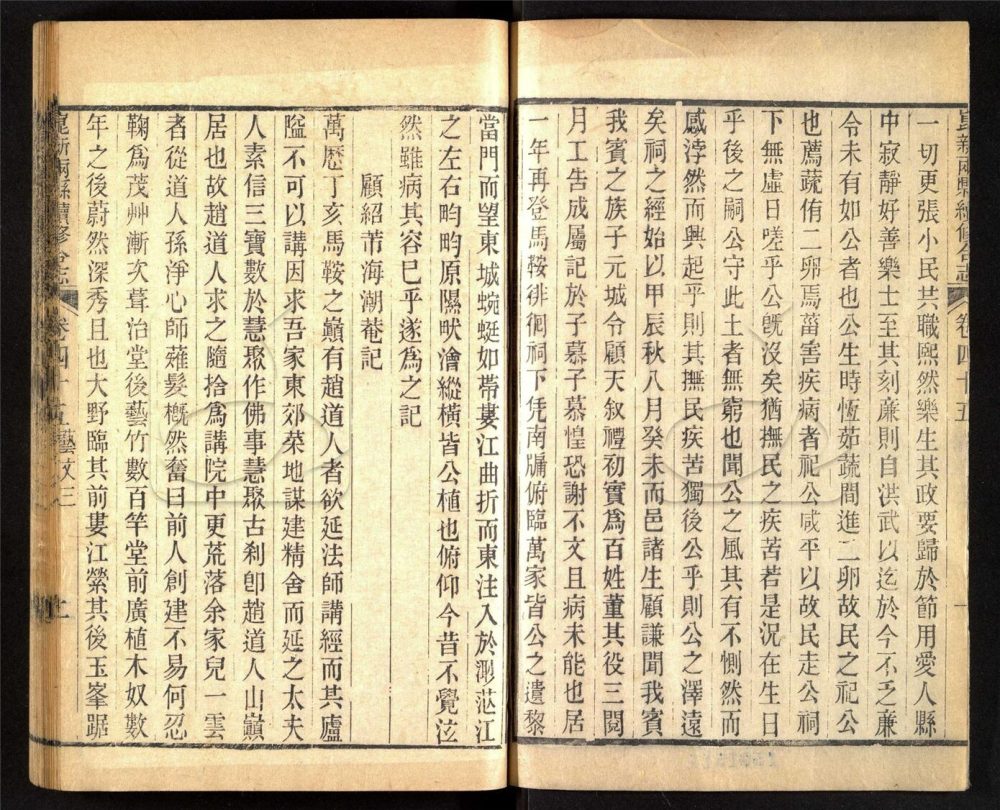 崑新兩縣續修合志 卷四十五
一切更張小民共職熙然樂生其政要歸於節用愛人縣
中寂靜好善樂士至其刻廉則自洪武以迄於今不乏廉
令未有如公者也公生時恆茹蔬間進二卵故民之祀公
也薦蔬侑二卵焉菑害疾病者祀公咸平以故民走公祠
下無虛日嗟乎公旣沒矣猶撫民之疾苦若是況在生日
乎後之嗣公守此土者無窮也聞公之風其有不惻然而
感浡然而興起乎則其撫民疾苦獨後公乎則公之澤遠
矣祠之經始以甲辰秋八月癸未而邑諸生顧謙聞我賓
我賓之族子元城令顧天叙禮初實爲百姓董其役三閱
月工告成屬記於子慕子慕惶恐謝不文且病未能也居
一年再登馬鞍徘徊祠下凭南牖俯臨萬家皆公之遺黎
當門而望東城蜿蜒如帶婁江曲折而東注入於淞江
之左右畇畇原隰畎澮縱橫皆公植也俯仰今昔不覺泫
然雖病其容已乎遂爲之記
顧紹芾海潮菴記
萬歷丁亥馬鞍之巔有趙道人者欲延法師講經而其廬
隘不可以講因求吾家東郊菜地謀建精舍而延之太夫
人素信三寶數於慧聚作佛事慧聚古刹卽趙道人山巔
居也故趙道人求之隨捨爲講院中更荒落余家兒一雲
者從道人孫淨心師薙髮槪然奮曰前人創建不易何忍
鞠爲茂艸漸次葺治堂後藝竹數百竿堂前廣植木奴數
年之後蔚然深秀且也大野臨其前婁江縈其後玉峯踞
崑新兩縣續修合志 卷四十五 藝文三